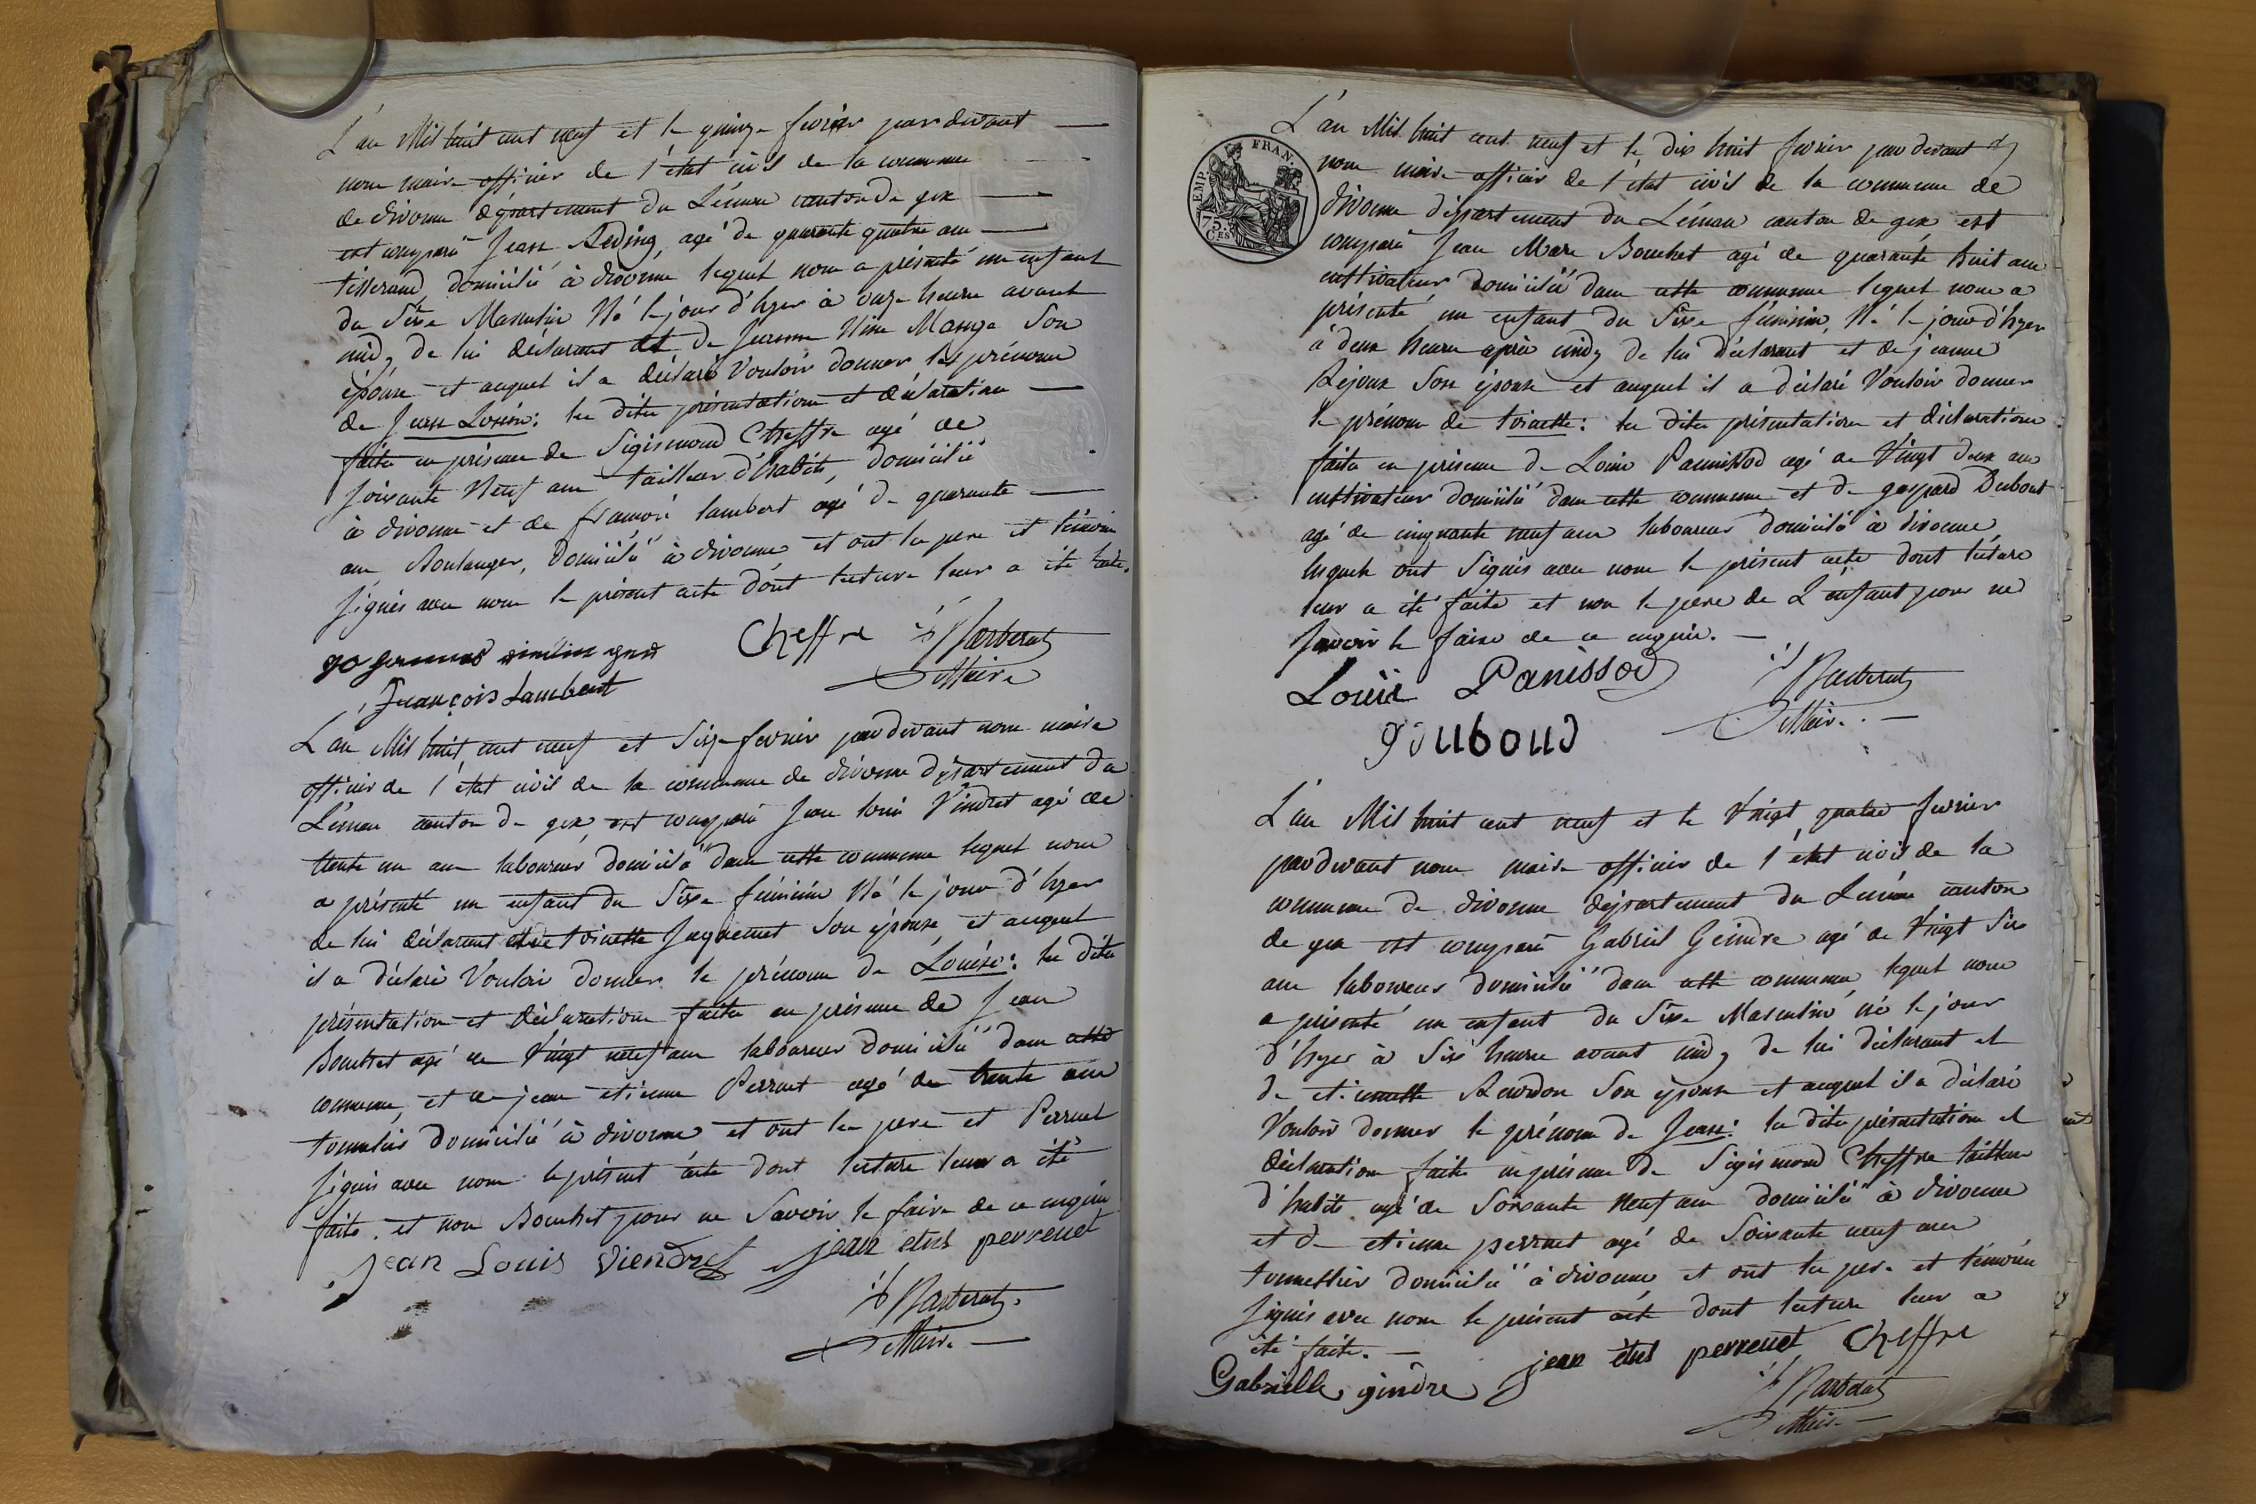 L'an Mil huit cent neuf et le quinze fevrier par devant
nous maire officier de l'état civil de la commune
de divonne département du Léman canton de gex
est comparu Jean Reding, agé de quarante quatre ans
tisserand, domicilié à divonne lequel nous a présenté un enfant
du Sexe Masculin Né le jour d'hyer à onze heures avant
midy de lui déclarant et de Jeanne Son
épouse et auquel il a déclaré Vouloir donner les prénoms
de Jean Louis: les dites présentation et déclaration
faites en présence de Sigismond Cheffre agé de
soixante Neuf ans tailleur d'habits, domicilié
à divonne et de françois lambert agé de quarante
ans Boulanger, domicilié à divonne et ont les pere et témoins
signés avec nous le présent acte dont lecture leur a été faite.
Cheffre
françois Lambert
Maire
L'an Mil huit cent neuf et Seize fevrier par devant nous maire
officier de l'état civil de la commune de divonne département du
Léman canton de gex, est comparu Jean louis Vindret agé de
trente un ans laboureur domicilié dans cette commune lequel nous
a présenté un enfant du Sexe féminin Né le jour d'hyer
de lui déclarant et de toinette Jaquemet Son épouse, et auquel
il a déclaré Vouloir donner le prénom de Louise: les dites
présentation et déclaration faites en présence de Jean
Bouchet agé de Vingt neuf ans laboureur domicilié dans cette
commune, et de jean etienne Perrenet agé de trente ans
tonnelier domicilié à divonne et ont les pere et Perrenet
signés avec nous le présent acte dont lecture leur a été
faite. et non Bouchet pour ne Savoir le faire de ce enquis
Jean Louis Viendret jean etne perrenet
Maire
L'an Mil huit cent neuf et le dix huit fevrier par devant
nous maire officier de l'état civil de la commune de
divonne département du Léman canton de gex est
comparu Jean Marc Bouchet agé de quarante huit ans
cultivateur domicilié dans cette commune lequel nous a
présenté un enfant du Sexe féminin, Né le jour d'hyer
à deux heures après midy de lui déclarant et de jeanne
Son épouse et auquel il a déclaré Vouloir donner
le prénom de toinette: les dites présentation et déclaration
faites en présence de Louis Pannissod agé de Vingt deux ans
cultivateur domicilié dans cette commune et de gaspard Duboul
agé de cinquante neuf ans laboureur domicilié à divonne
lesquels ont Signés avec nous le présent acte dont lecture
leur a été faite et non le pere de L'enfant pour ne
Savoir le faire de ce enquis.
Louis Panissod
Maire
L'an Mil huit cent neuf et le Vingt quatre fevrier
par devant nous maire officier de l'état civil de la
commune de divonne département du Léman canton
de gex est comparu Gabriel Geindre agé de Vingt Six
ans laboureur domicilié dans cette commune, lequel nous
a présenté un enfant du Sexe Masculin né le jour
d'hyer à Six heures avant midy de lui déclarant et
de etiennette Son épouse et auquel il a déclaré
Vouloir donner le prénom de Jean: les dites présentation et
déclaration faites en présence de Sigismond Cheffre tailleur
d'habits agé de Soixante Neuf ans domicilié à divonne
et de etienne perrenet agé de Soixante neuf ans
tonnellier domicilié à divonne et ont les pere et témoins
signés avec nous le présent acte dont lecture leur a
été faite.
Gabrielle gindre jean etne perrenet Cheffre
Maire
EMP. FRAN.
75.
CES